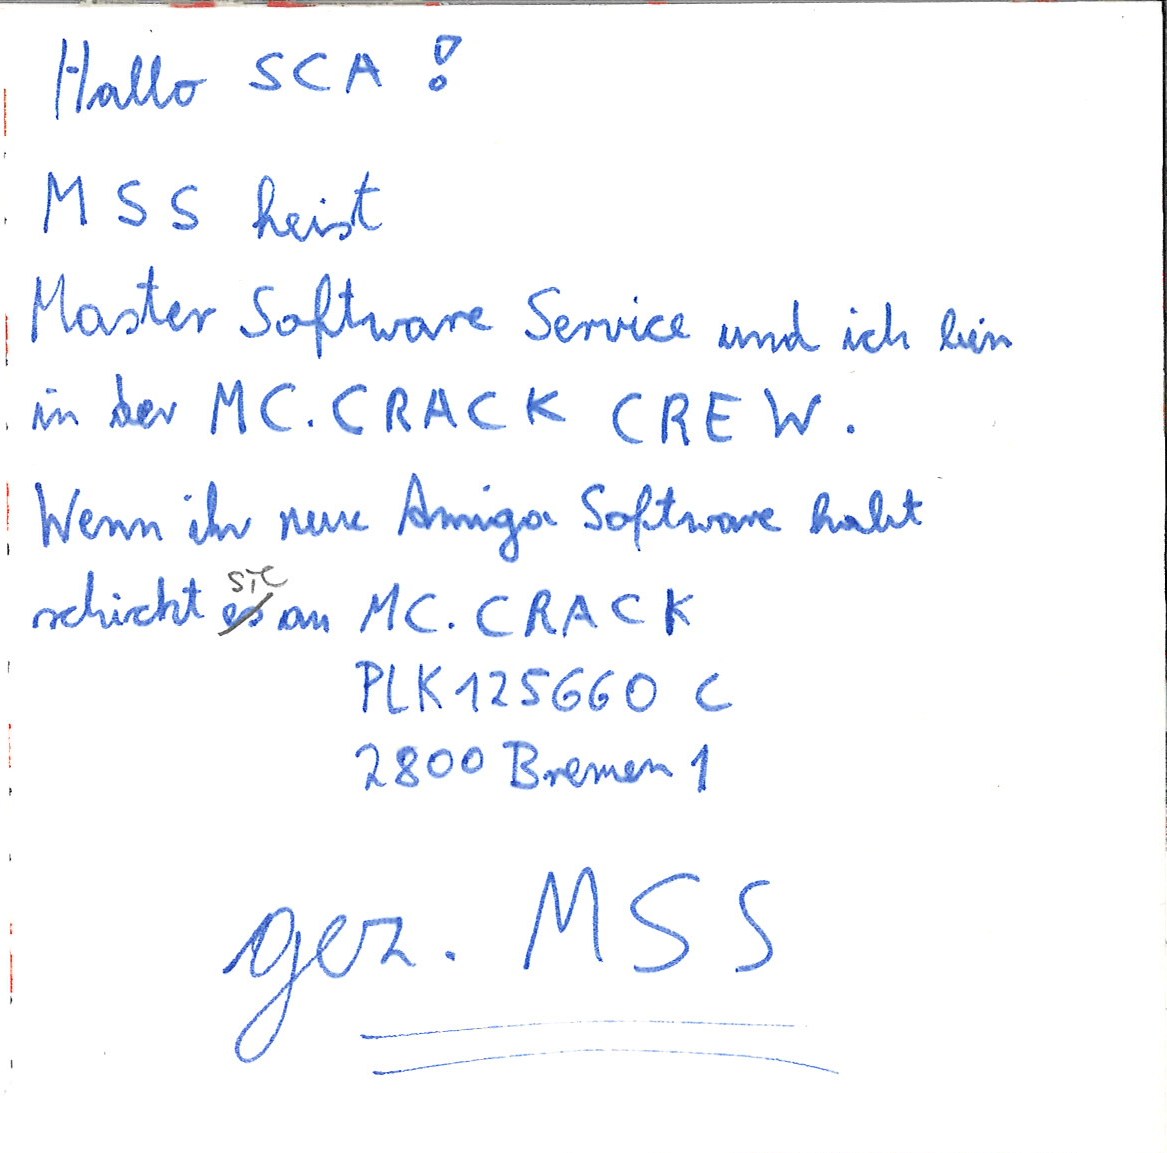 Hallo SCA !
MSS heist
Master Software Service und ich bin
in der MC.CRACK CREW.
Wenn ihr neue Amiga Software habt
schickt sie an MC. CRACK
PLK 125660 C
2800 Bremen 1
gez. MSS